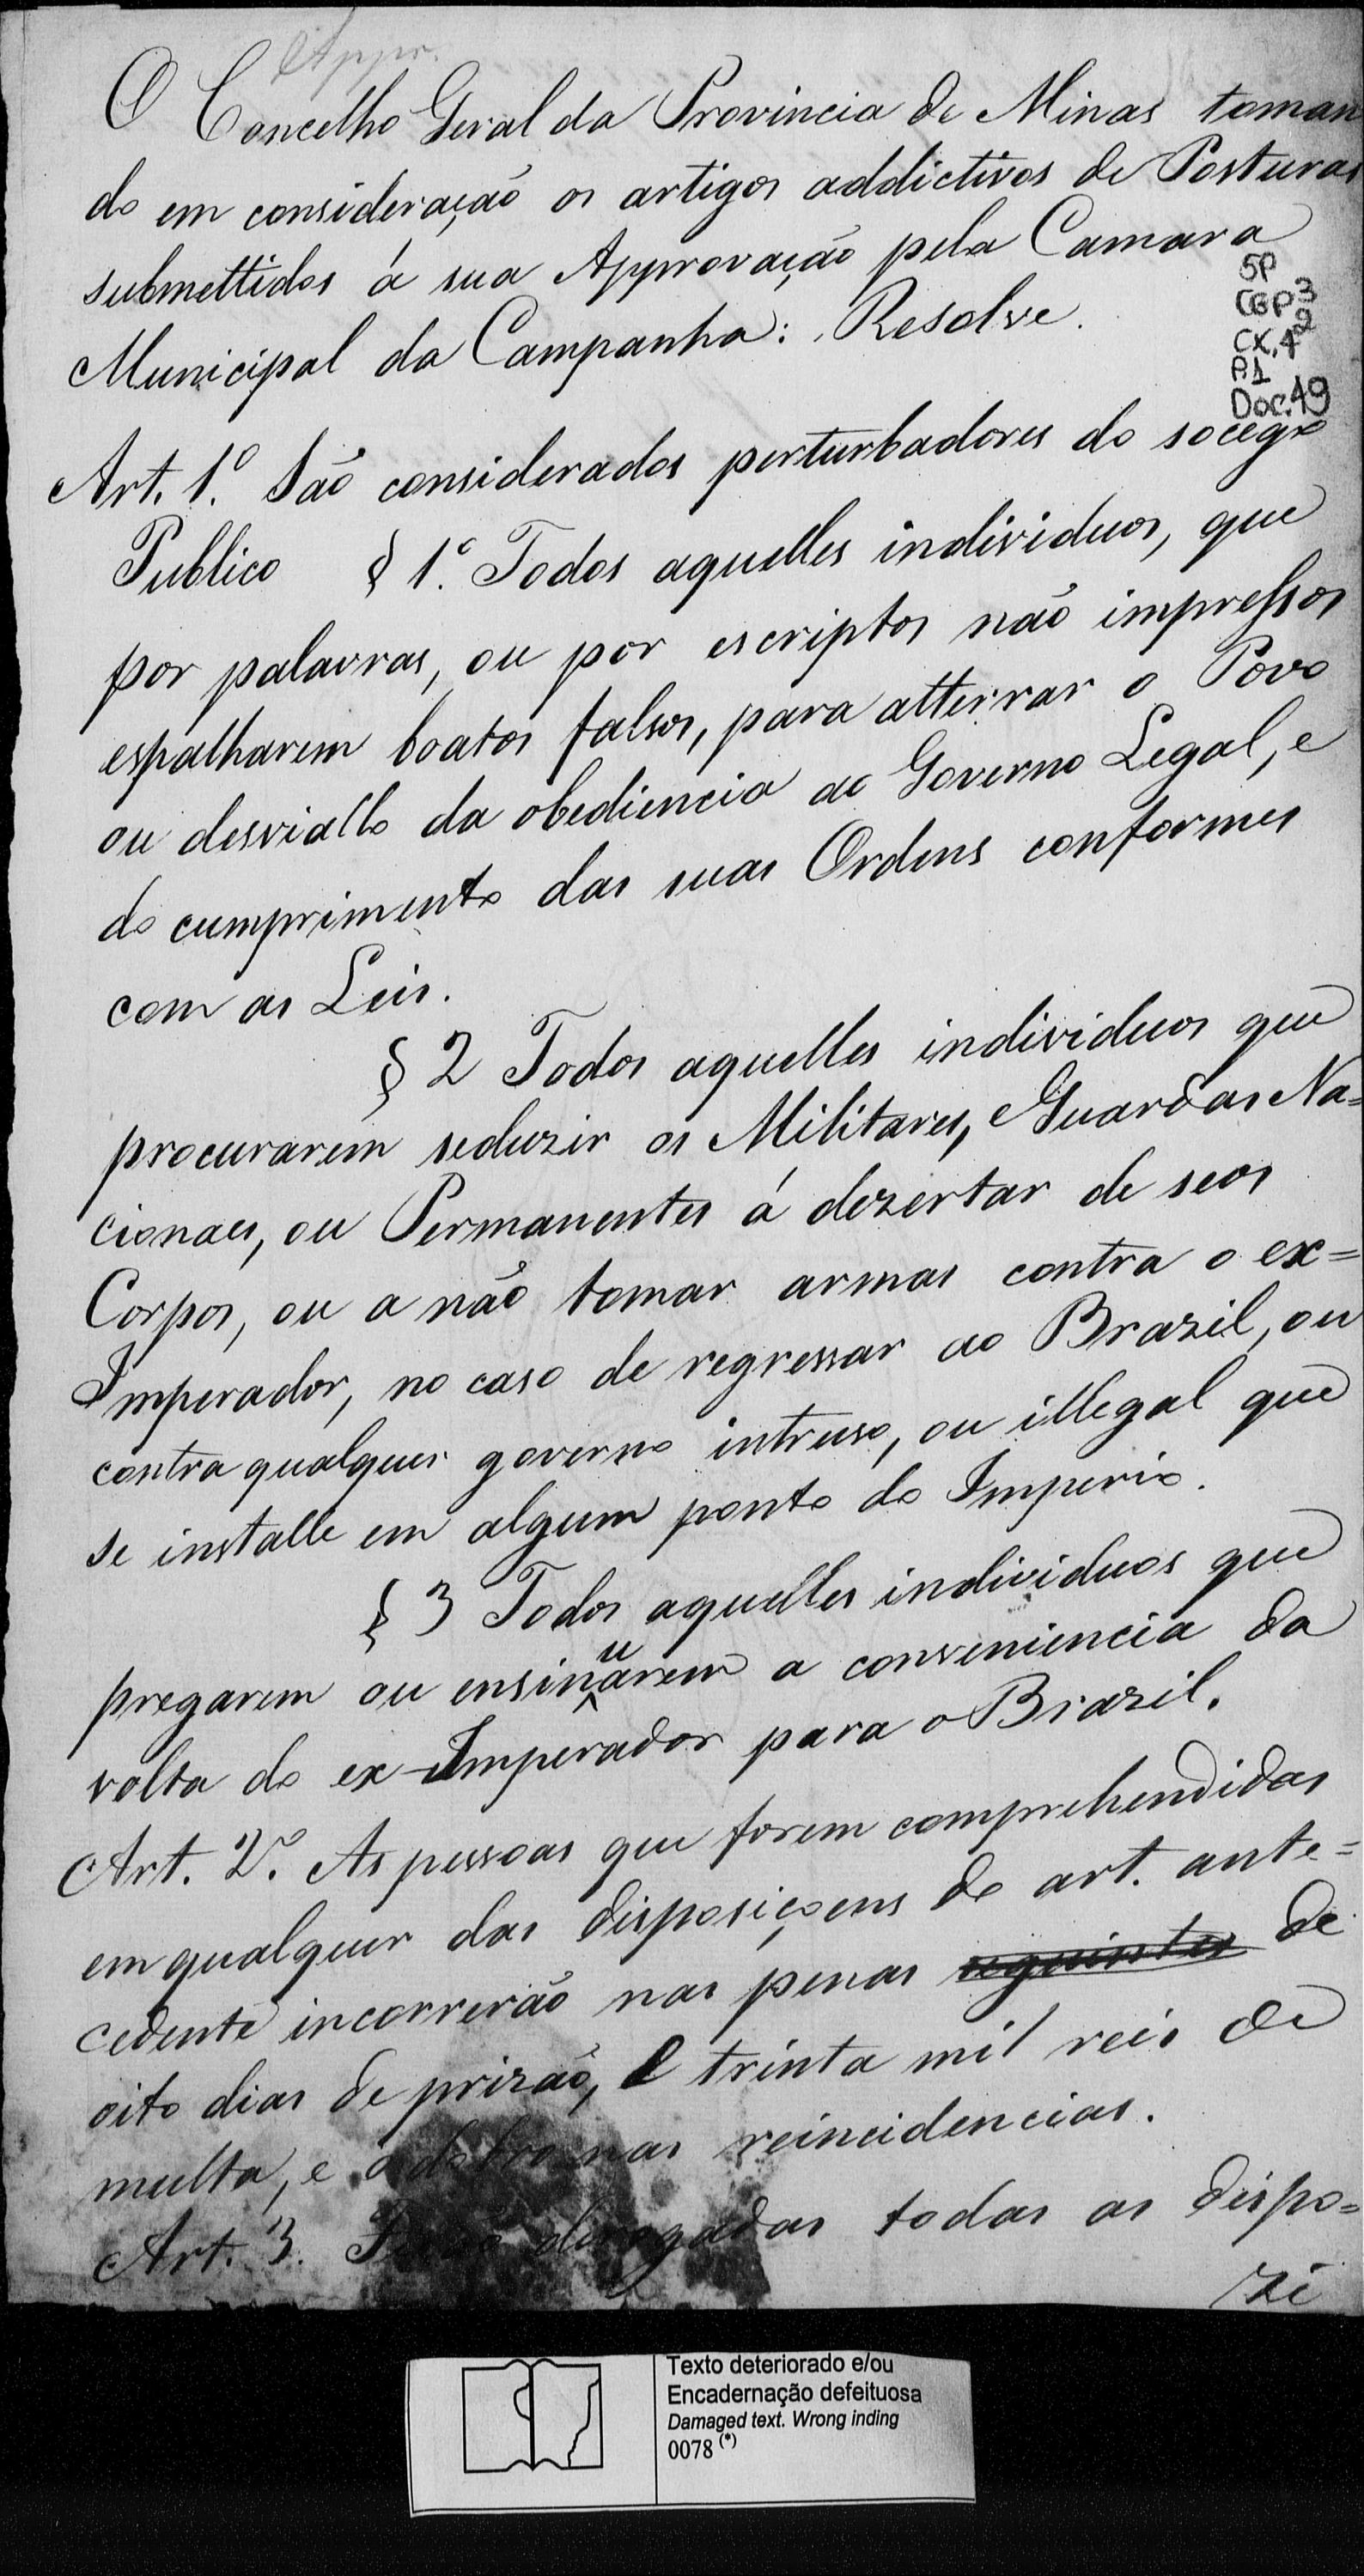 Appr.
O Concelho Geral da Provincia de Minas toman
do em consideração os artigos addictivos de Posturas
submettidos á sua Approvação pela Camara
Municipal da Campanha: Resolve.
SP
CGP3
CX.42
P1
Doc.49
Art. 1.º São considerados perturbadores do socego
Publico § 1.º Todos aquelles individuos, que
por palavras, ou por escriptos não impressos
espalharem boatos falsos, para atterrar o Povo
ou desviallo da obediencia ao Governo Legal, e
do cumprimento das suas Ordens conformes
com as Leis.
§ 2 Todos aquelles individuos que
procurarem seduzir os Militares, Guardas Na=
cionaes, ou Permanentes á dezertar de seos
Corpos, ou a não tomar armas contra o ex=
Imperador, no caso de regressar ao Brazil, ou
contra qualquer governo intruso, ou illegal que
se installe em algum ponto do Imperio.
§ 3 Todos aquelles individuos que
pregarem ou ensinuarem a conveniencia da
volta do ex-Imperador para o Brazil.
Art. 2.º As pessoas que forem comprehendidas
em qualquer das disposiçoens do art. ante=
cedente incorrerão nas penas seguintes de
oito dias de prizão, e trinta mil reis de
multa, e o dobro nas reincidencias.
Art. 3. Ficão derogadas todas as dispo=
zi
Texto deteriorado e/ou
Encadernação defeituosa
Damaged text. Wrong inding
0078 (*)